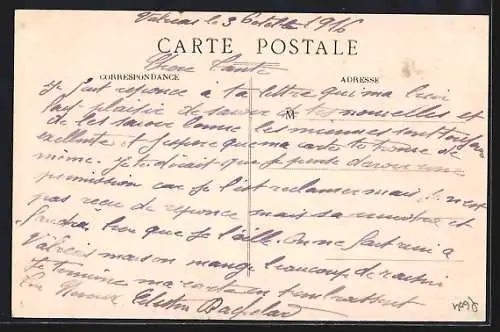 Valréas le 3 octobre 1916
CARTE POSTALE
Chère Tante
CORRESPONDANCE
ADRESSE
Je fait reponce à ta lettre qui ma bien
fait plaisir de savoir de tes nouvelles et
de les savoir bonne les miennes sont toujours
M
excellente et j'espere que ma carte te trouve de
même. Je te dirait que je pense davoir une
permission car je l'est reclamer mais je n'est
pas reçu de reponce mais sa viendra et
faudra bien que je l'aille. On ne fait rien a
Valréas mais on mange beaucoup de raisin
Je termine ma carte en t'embrassant
Ton Neveux Célestin